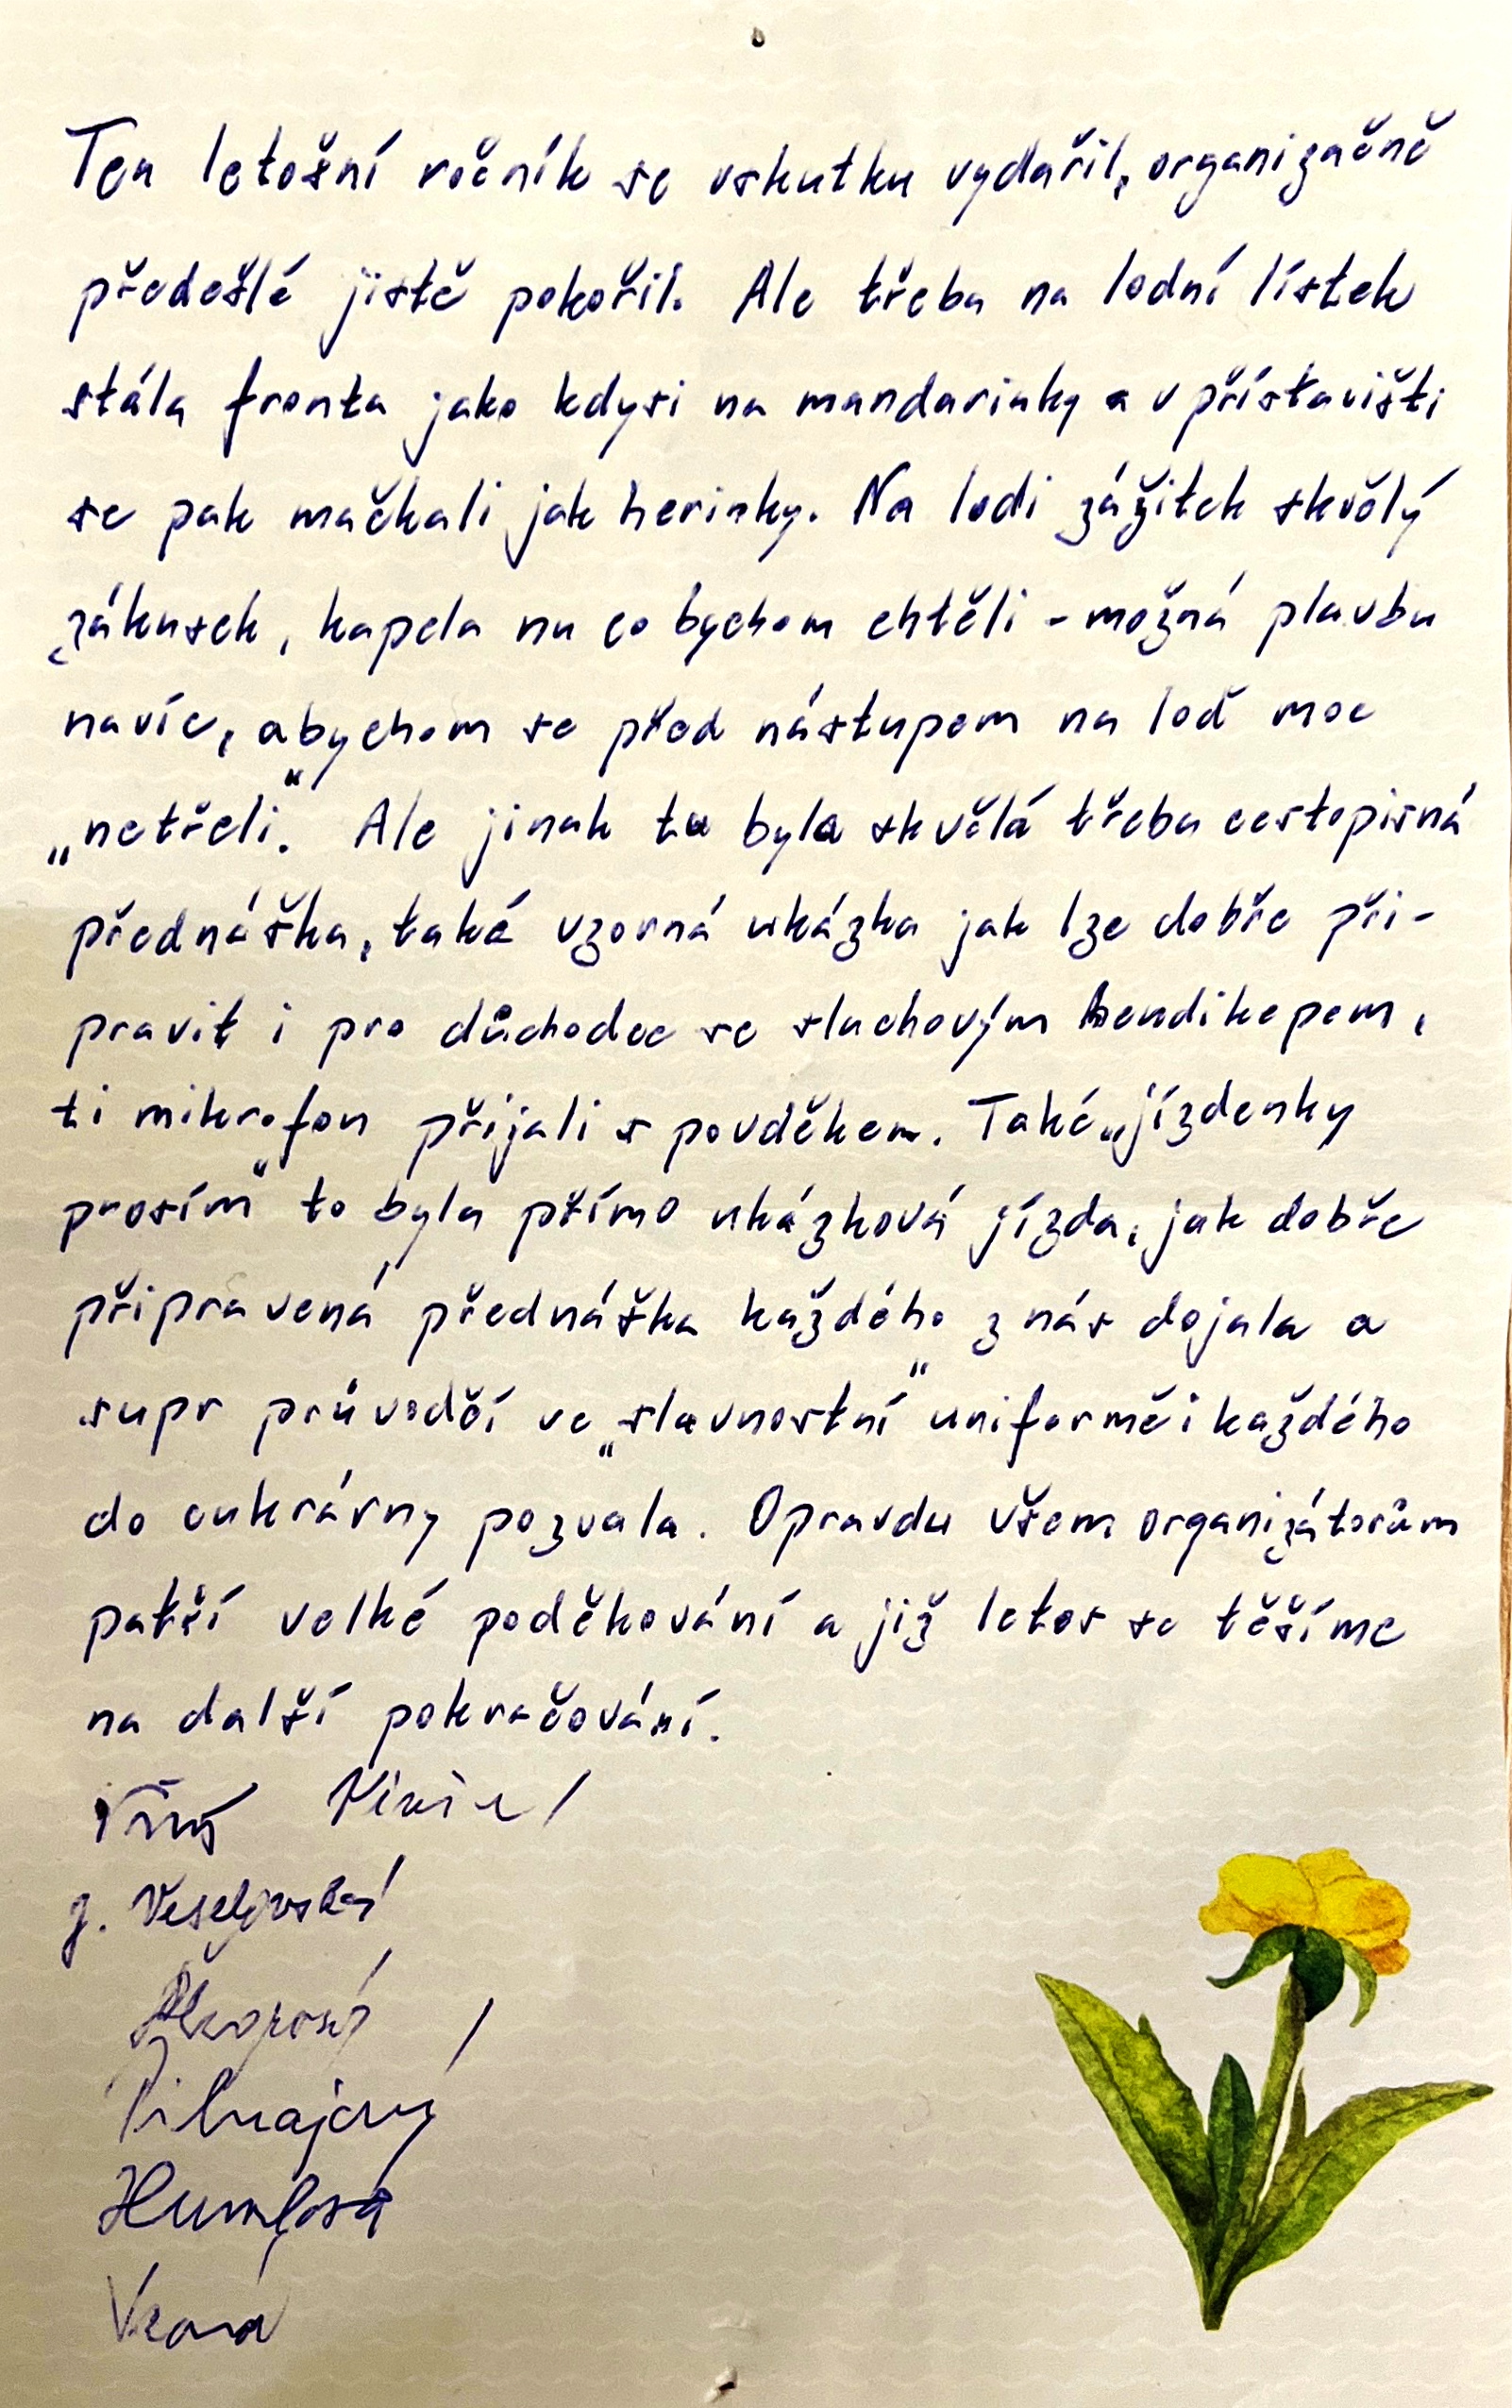 Ten letošní ročník se vskutku vydařil, organizačně
předešlé jistě pokořil. Ale třeba na lodní lístek
stála fronta jako kdysi na mandarinky a v přístavišti
se pak mačkali jak herinky. Na lodi zážitek skvělý
zákusek, kapela nu co bychom chtěli - možná plavbu
navíc, abychom se před nástupem na loď moc
„netřeli“. Ale jinak tu byla skvělá třeba cestopisná
přednáška, také vzorná ukázka jak lze dobře při-
pravit i pro důchodce se sluchovým hendikepem,
ti mikrofon přijali s povděkem. Také „jízdenky
prosím“ to byla přímo ukázková jízda, jak dobře
připravená přednáška každého z nás dojala a
supr průvodčí ve „slavnostní“ uniformě i každého
do cukrárny pozvala. Opravdu všem organizátorům
patří velké poděkování a již letos se těšíme
na další pokračování.
J. Veselovská